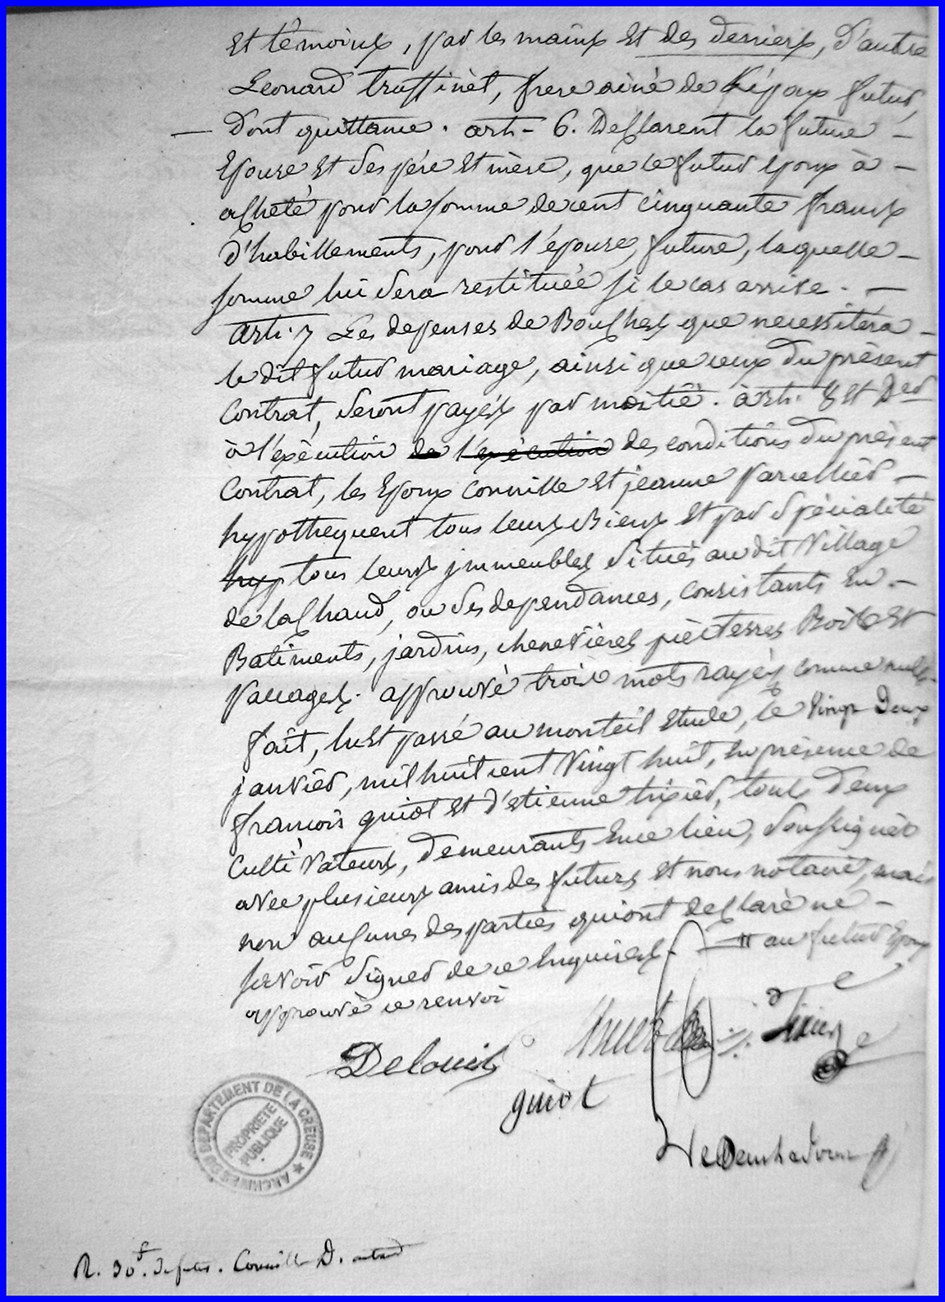 et témoins, par les mains et des deniers, d'autre
Leonard truffinèt, frere ainé de l'époux futur
— Dont quittance. arti- 6. Declarent la future —
Epouse et ses père et mère, que le futur epoux à —
acheté pour la somme de cent cinquante francs
d'habillements, pour l'épouse future, laquelle —
somme lui sera restituée si le cas arrive. —
arti. 7 Les depenses de Bouches que necessitera —
le dit futur mariage, ainsi que ceux du présent
contrat, seront payés par moitié. arti. 8 Et Der
à l'exècution de l'exécution des conditions du présent
contrat, les Epoux conville et jeanne parcellier —
hypothequent tous leurs Biens et par spécialité
hyp tous leurs jmmeubles situés au dit Village
de la Chaud, ou ses dependances, consistants en —
Batiments, jardins, chenevières, terres Bois et
paccages. approuvé trois mots rayés comme nuls.
fait, lu et passé au monteil Etude, le vingt Deux
janvier, mil huit cent vingt huit, en présence de
francois guiot et d'etienne tixier, touts deux
cultivateurs, demeurants en ce lieu, soussignés
avec plusieurs amis des futurs et nous notaire, mais
non aucunes des parties qui ont declaré ne —
scavoir signer de ce Enquises. — # au futur Epoux
approuvé ce renvoi
Delouis tixier
guiot
ARCHIVES DU DEPARTEMENT DE LA CREUSE
PROPRIETE PUBLIQUE
R. 30f.